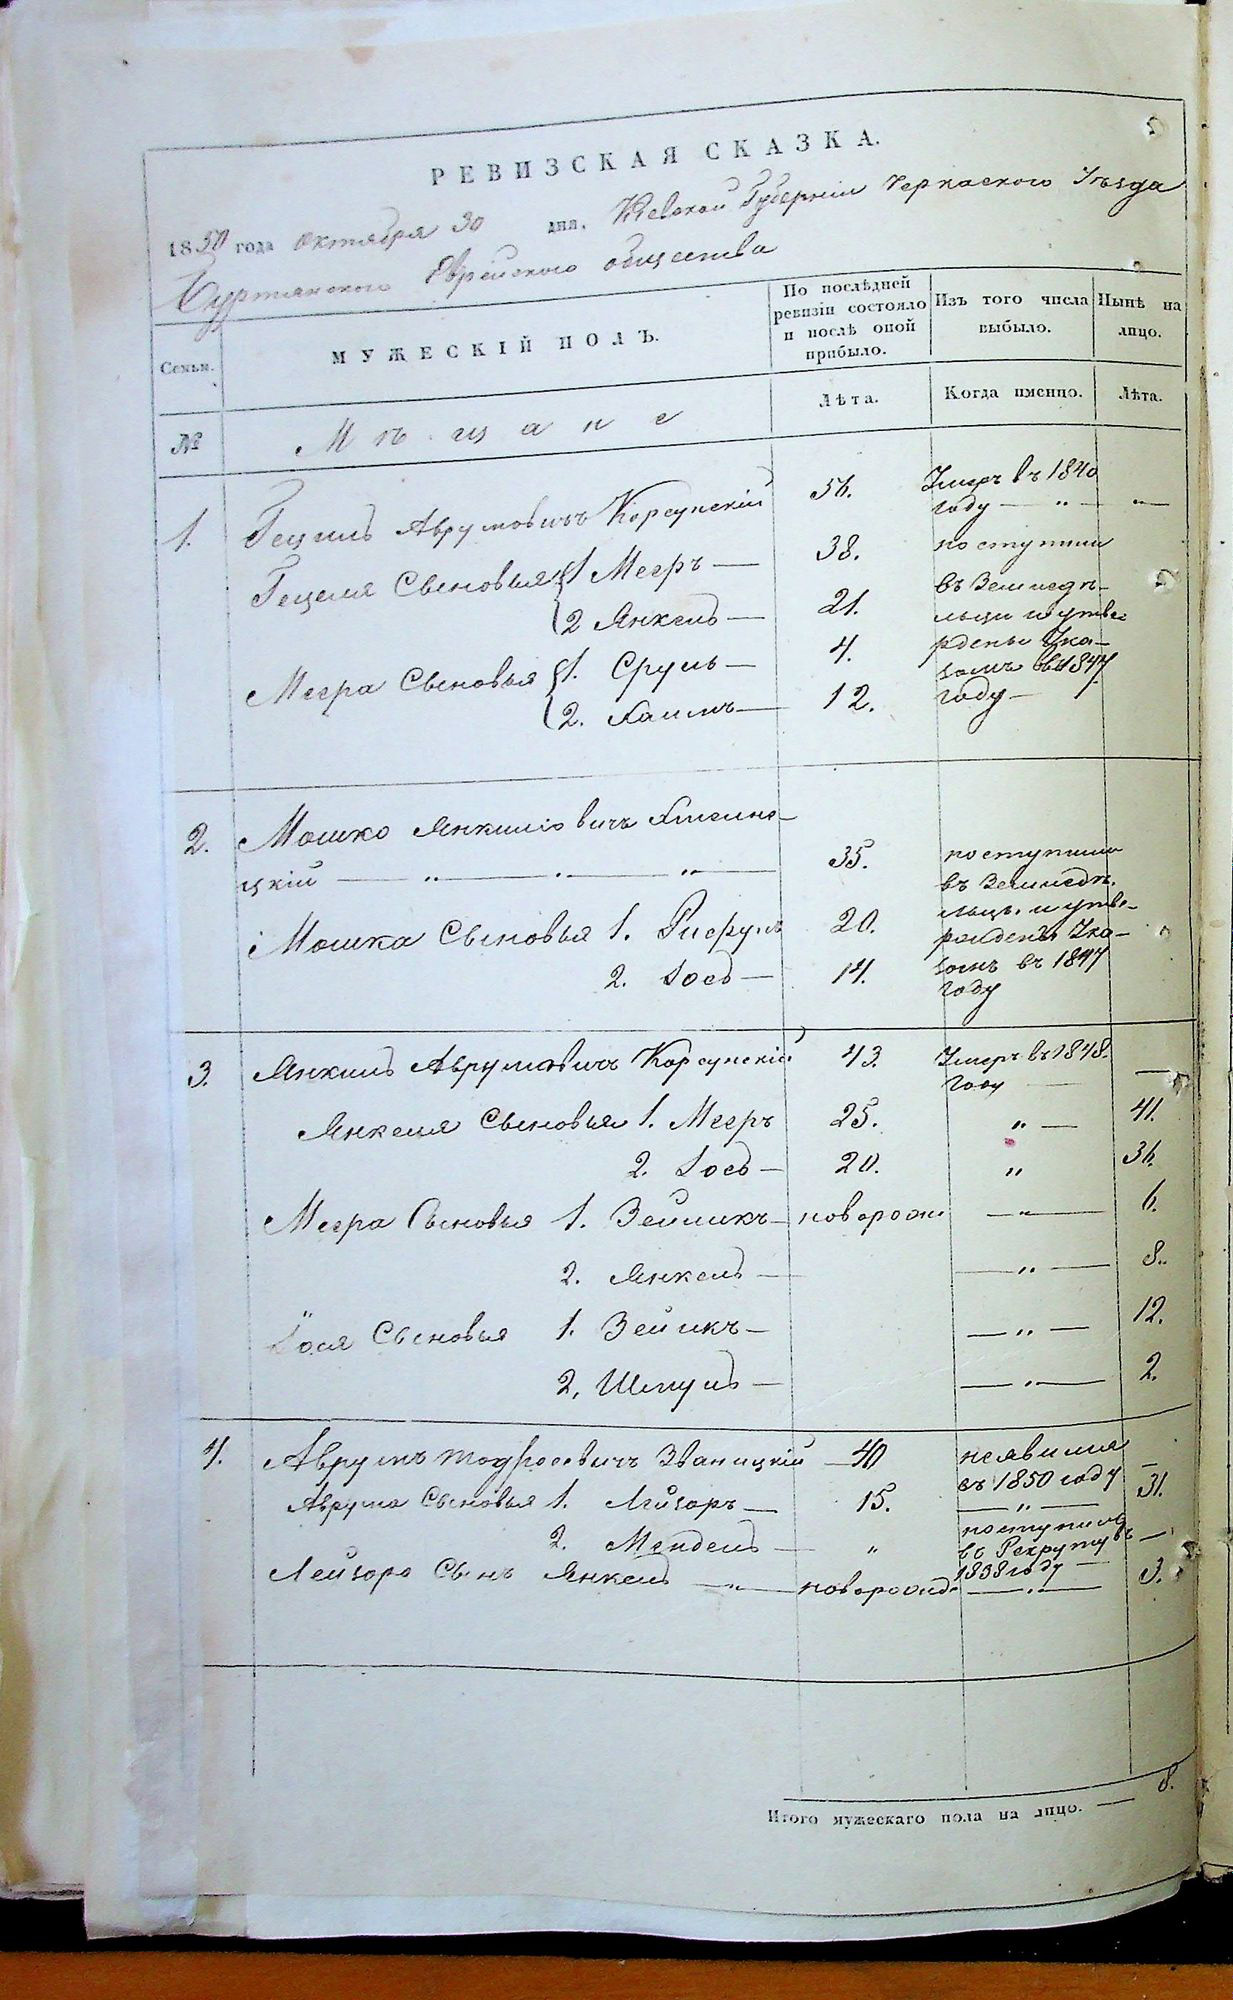 РЕВИЗСКАЯ СКАЗКА.
1850 года Октября 30 дня. Кіевской Губерніи Черкаского Уѣзда
Еврейского общества
Семьи.
МУЖЕСКІЙ ПОЛЪ.
По послѣдней ревизіи состояло и послѣ оной прибыло.
Изъ того числа выбыло.
Нынѣ на лицо.
№
Мѣщане
Лѣта.
Когда именно.
Лѣта.
1. Гецель Аврумовичъ Корсунскій 56. Умеръ въ 1840
году — „ — „ —
Гецеля Сыновья 1 Мееръ — 38. поступили
въ Земледѣ-
2 Янкель — 21. льцы и утве-
Меера Сыновья 1. Сруль — 4. рдены Ука-
зомъ въ 1847
2. Хаимъ — 12. году —
2. Мошко Янкелiовичъ
цкій — „ — „ — „ — 35. поступили
въ Земледѣ-
Мошка Сыновья 1. 20. льцы и утве-
рждены Ука-
2. Іось — 14. зомъ въ 1847
году
3. Янкель Аврумовичъ Корсунскій 43. Умеръ въ 1848.
году — —
Янкеля Сыновья 1. Мееръ 25. „ — 41.
2. Іось — 20. „ 36.
Меера Сыновья 1. Зейликъ — новорожд — „ — 6.
2. Янкель — — „ — 8.
Іося Сыновья 1. Зейликъ — — „ — 12.
2. Шмуль — — „ — 2.
4. Аврумъ Тодросовичъ Званицкій — 40 неявился
въ 1850 году —
Аврума Сыновья 1. Лейзоръ — 15. — „ — 31.
2. Мендель — „ поступилъ
въ Рекруты въ —
1838 году —
Лейзора Сынъ Янкель — „ — новорожд. — „ — 3.
Итого мужескаго пола на лицо. — 8.